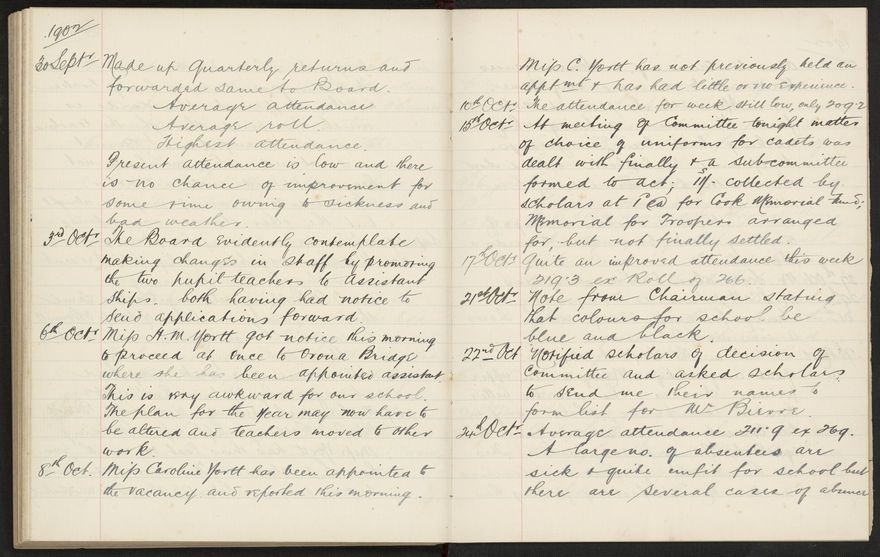 1902
30 Septr Made up Quarterly returns and
forwarded same to Board.
Average attendance
Average roll.
Highest attendance.
Present attendance is low and there
is no chance of improvement for
some time owing to sickness and
bad weather.
3rd Octr The Board evidently contemplate
making changes in staff by promoting
the two pupil teachers to assistant
ships. both having had notice to
send applications forward.
6th Octr Miss H. M. Yortt got notice this morning
to proceed at once to Orona Bridge
where she has been appointed assistant.
This is very awkward for our school.
The plan for the year may now have to
be altered and teachers moved to other
work.
8th Oct. Miss Caroline Yortt has been appointed to
the vacancy and reported this morning.
Miss C. Yortt has not previously held an
apptmt & has had little or no experience.
10th Octr The attendance for week still low, only 209.2
15th Octr At meeting of Committee tonight matter
of choice of uniforms for cadets was
dealt with finally & a sub-committee
formed to act; collected by
scholars at 1d ea for Cook Memorial
Memorial for Troopers arranged
for, but not finally settled.
17th Octr Quite an improved attendance this week
219.3 ex Roll of 266.
21st Octr Note from Chairman stating
that colours for school be
blue and black.
22nd Oct Notified scholars of decision of
Committee and asked scholars
to send me their names to
form list for Mr
24th Octr Average attendance 211.9 ex 269.
A large no. of absentees are
sick & quite unfit for school but
there are several cases of absence